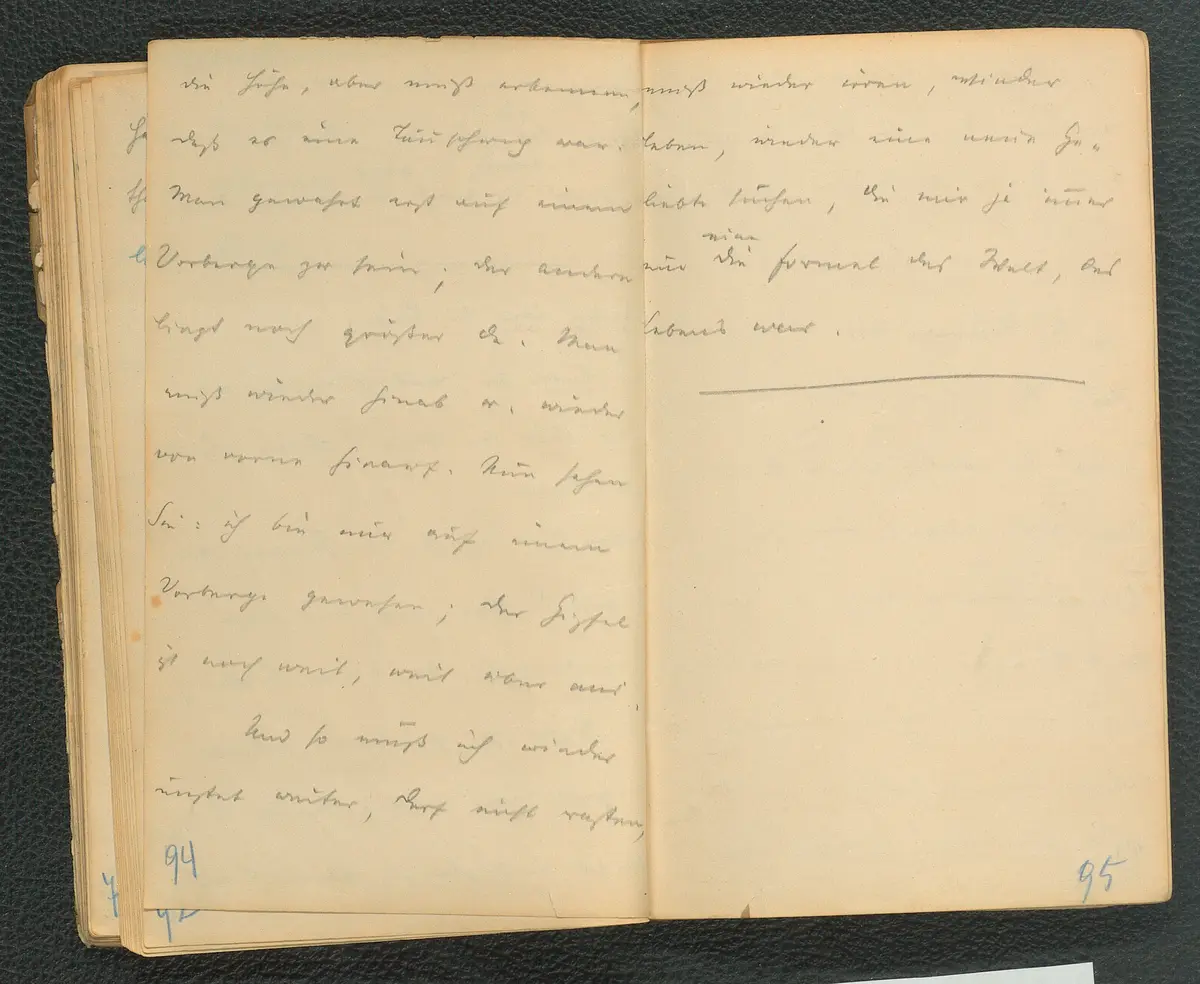 die Höhe, aber muß erkennen,
daß es eine Täuschung war.
Man gewahrt erst auf einem
Vorberge zu sein; der andere
liegt noch größer da. Man
muß wieder hinab u. wieder
von vorne hinauf. Nun sehen
Sie: ich bin nur auf einem
Vorberge gewesen; der Gipfel
ist noch weit, weit über mir.
Und so muß ich wieder
unstet weiter, darf nicht rasten,
94
muß wieder irren, wieder
leben, wieder eine neue Ge-
liebte suchen, die mir ja immer
eine
nur die Formel der Welt, des
Lebens war.
95